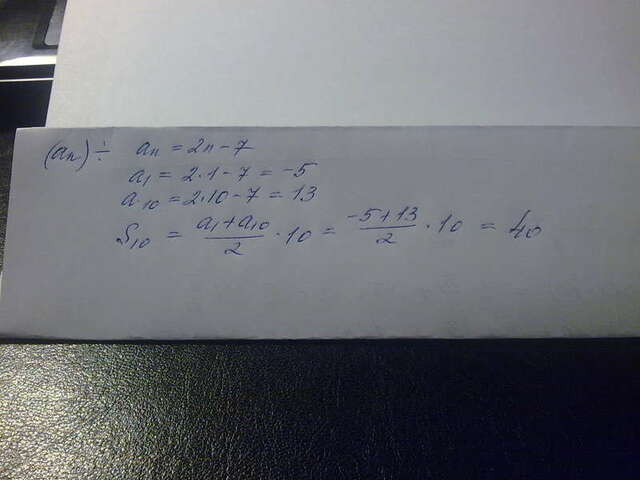 (aₙ) ÷ aₙ = 2n - 7
a₁ = 2·1 - 7 = -5
a₁₀ = 2·10 - 7 = 13
S₁₀ = (a₁ + a₁₀)/2 · 10 = (-5 + 13)/2 · 10 = 40